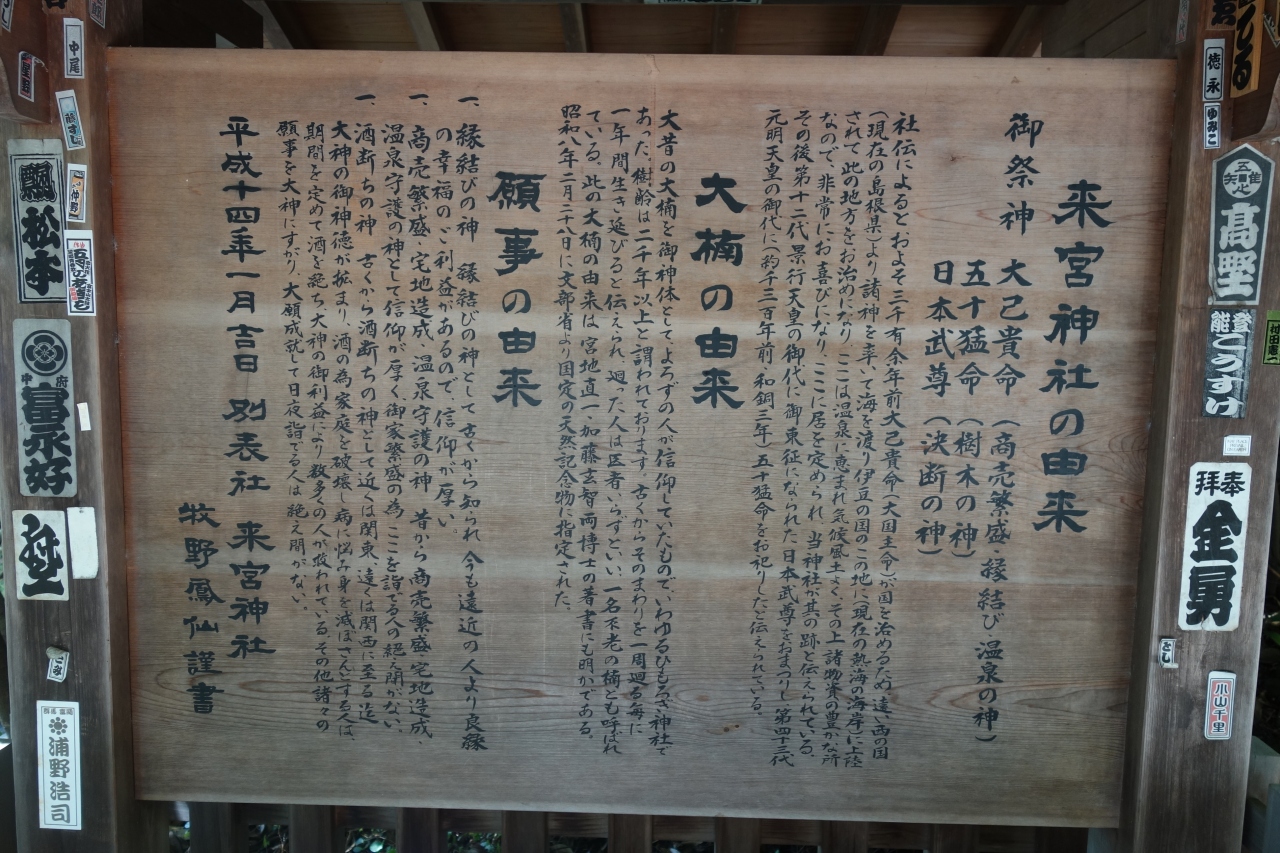 来宮神社の由来
御祭神　大己貴命（商売繁盛・縁結び・温泉の神）
五十猛命（樹木の神）
日本武尊（決断の神）
社伝によるとおよそ三千有余年前大己貴命（大国主命）が国を治めるため遠い西の国
（現在の島根県）より諸神を率いて海を渡り伊豆の国のこの地に（現在の熱海の海岸）に上陸
されて此の地方をお治めになり、ここは温泉に恵まれ気候風土よくその上諸物資の豊かな所
なので、非常にお喜びになり、ここに居を定められ、当神社が其の跡と伝えられている。
その後第十二代景行天皇の御代に御東征になられた日本武尊をおまつりし第四十三代
元明天皇の御代に（約千三百年前・和銅三年）五十猛命をお祀りしたと伝えられている。
大楠の由来
大昔の大楠を御神体としてよろずの人が信仰していたもので、いわゆるひもろぎ神社で
あった。樹齢は二千年以上と謂われております。古くからそのまわりを一周廻る毎に
一年間生き延びると伝えられ、廻った人は医者いらずといい、一名不老の楠とも呼ばれ
ている。此の大楠の由来は宮地直一・加藤玄智両博士の著書にも明かである。
昭和八年二月二十八日に文部省より国定の天然記念物に指定された。
願事の由来
一、縁結びの神　縁結びの神として古くから知られ今も遠近の人より良縁
の幸福のご利益があるので、信仰が厚い。
一、商売繁盛・宅地造成・温泉守護の神　昔から商売繁盛・宅地造成・
温泉守護の神として信仰が厚く御家繁盛の為ここを詣でる人の絶え間がない。
一、酒断ちの神　古くから酒断ちの神として近くは関東、遠くは関西に至る迄
大神の御神徳が拡まり、酒の為家庭を破壊し病に悩み身を滅ぼさんとする人は、
期間を定めて酒を絶ち、大神の御利益により数多くの人が救われている。その他諸々の
願事を大神にすがり、大願成就して日夜詣でる人は絶え間がない。
平成十四年一月吉日　別表社　来宮神社
牧野鳳仙謹書
徳永
ゆみこ
高野
登こうすけ
能
奉拝
金勇
とし
小山千里
中尾
仲野
松本
府中
富永好
浦野浩司